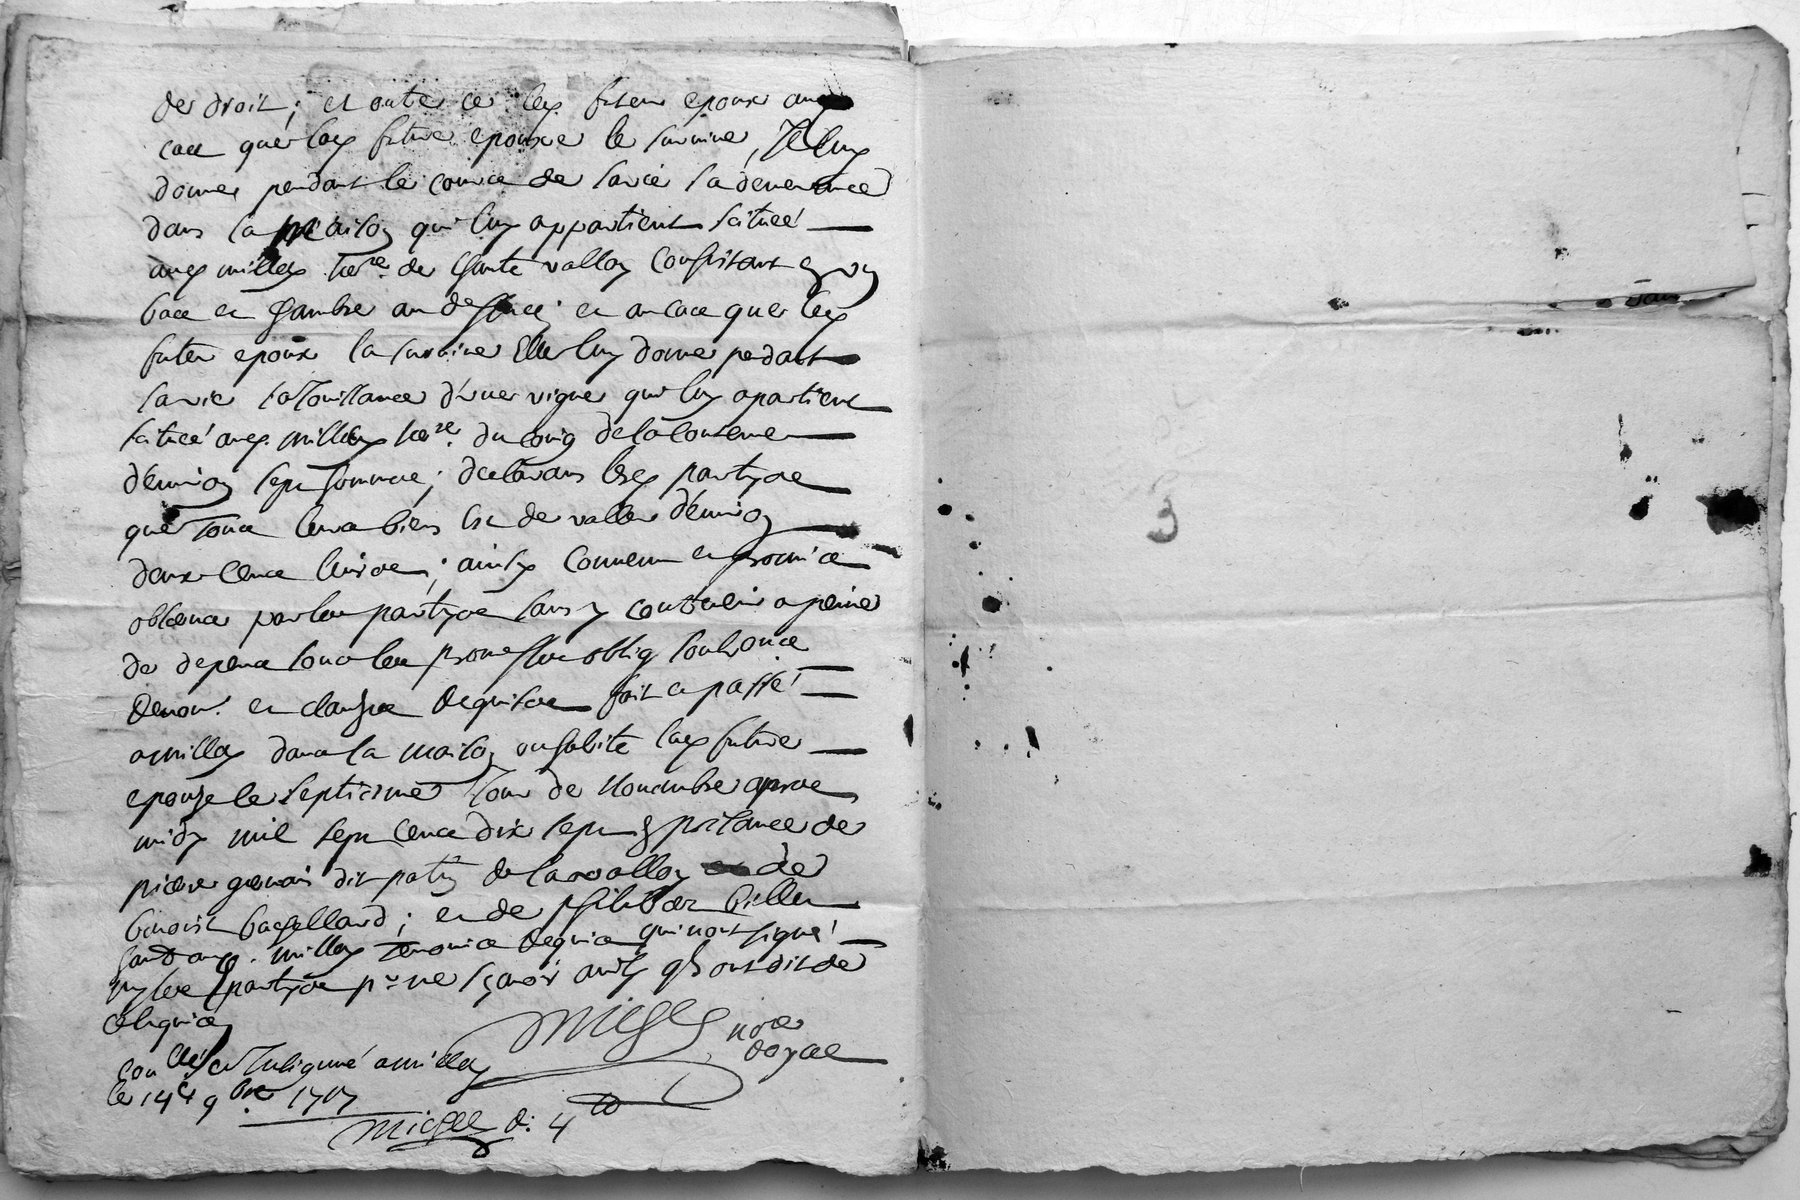 de droit; et outre ce led futeur epoux au
cas que lad future epouse le survive, Il luy
donne pendant le cource de sa vie la demeurance
dans la maison qui luy appartient scituée
aud millery de Chante vallon consistant en un
bace et chambre au dessus; et au cace que led
futeur epoux la survive Elle luy donne pendant
sa vie la Jouissance d'une vigne qui luy apartient
scituée aud millery du coing de la contenue
d'environ sept hommée; declarans lesd partyes
que tous leurs biens est de valleur d'environ
deux cence livres; ainsy convenu et promis
observer par les partyes sans y contrevenir a peine
de depens sous les prom
renon. et clauzes requises fait et passé
a millery dans la maison ou habite lad future
epouze le septieme Jour de Novembre apres
midy mil sept cens dix sept en presance de
pierre gervais dit patin de la vallon de
benoist bachellard; et de philibert
aud millery temoins requis qui n'ont signé
ny les partyes pr ne sçavoir ainsy qls ont dit de
ce requis
Michel no.re
royal
Con.llé et Insignué a millery
le 14e 9bre 1717
Michel